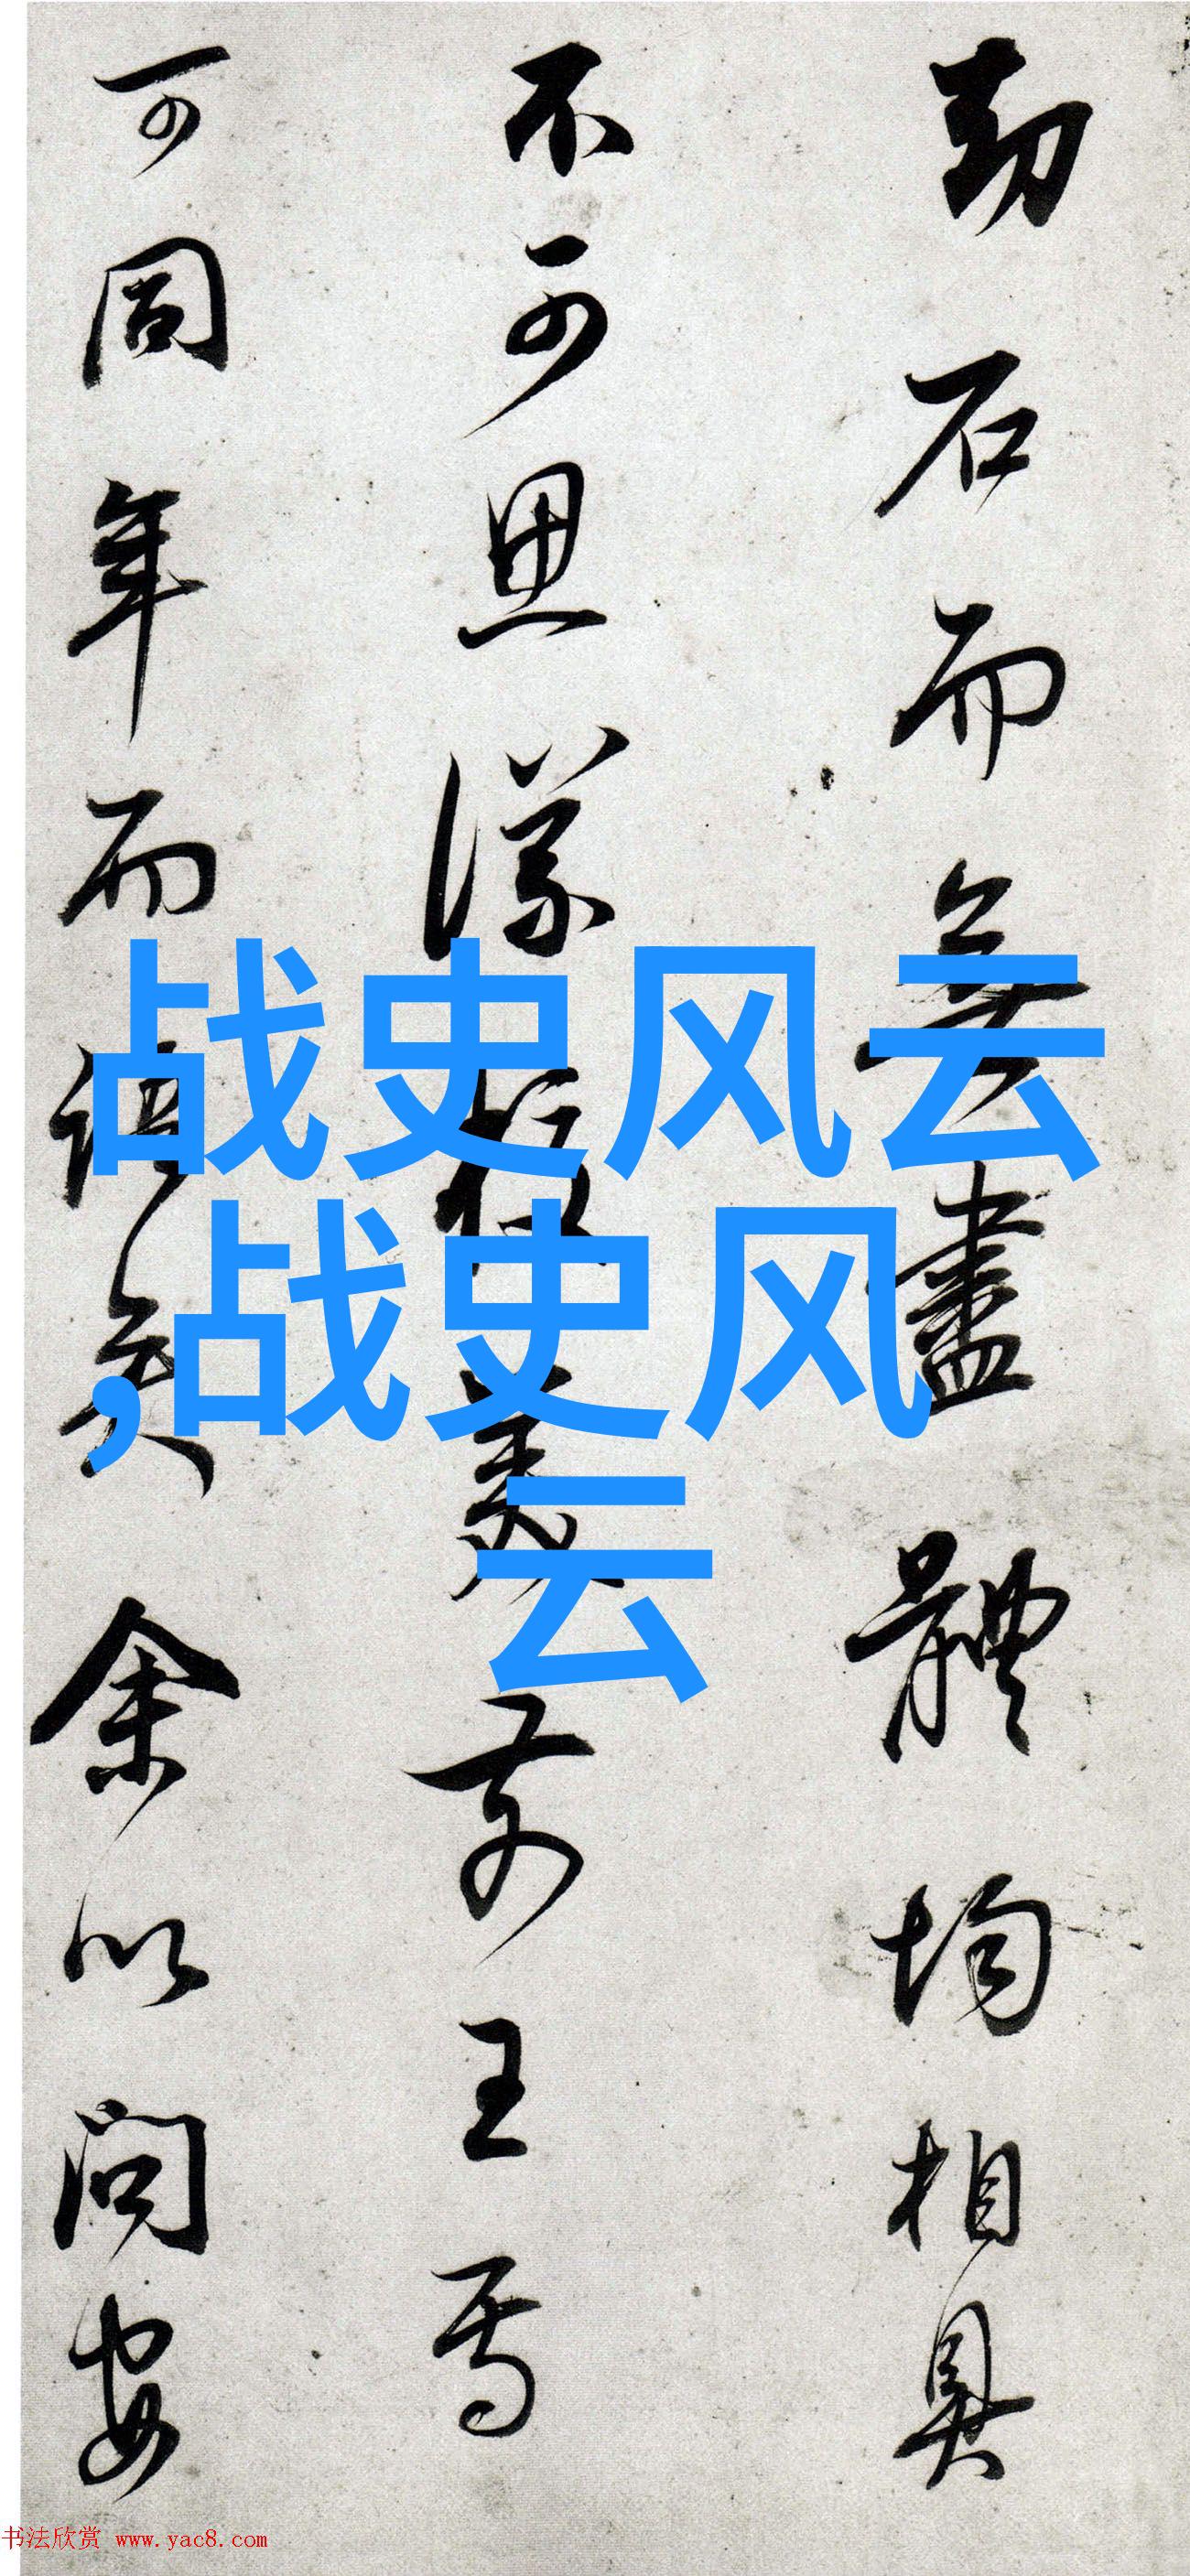 劫石而無盡體均相具
不可思議美前王焉
可同年而語矣余以問安
战史风云
,战史风
云
书法欣赏 www.yac8.com